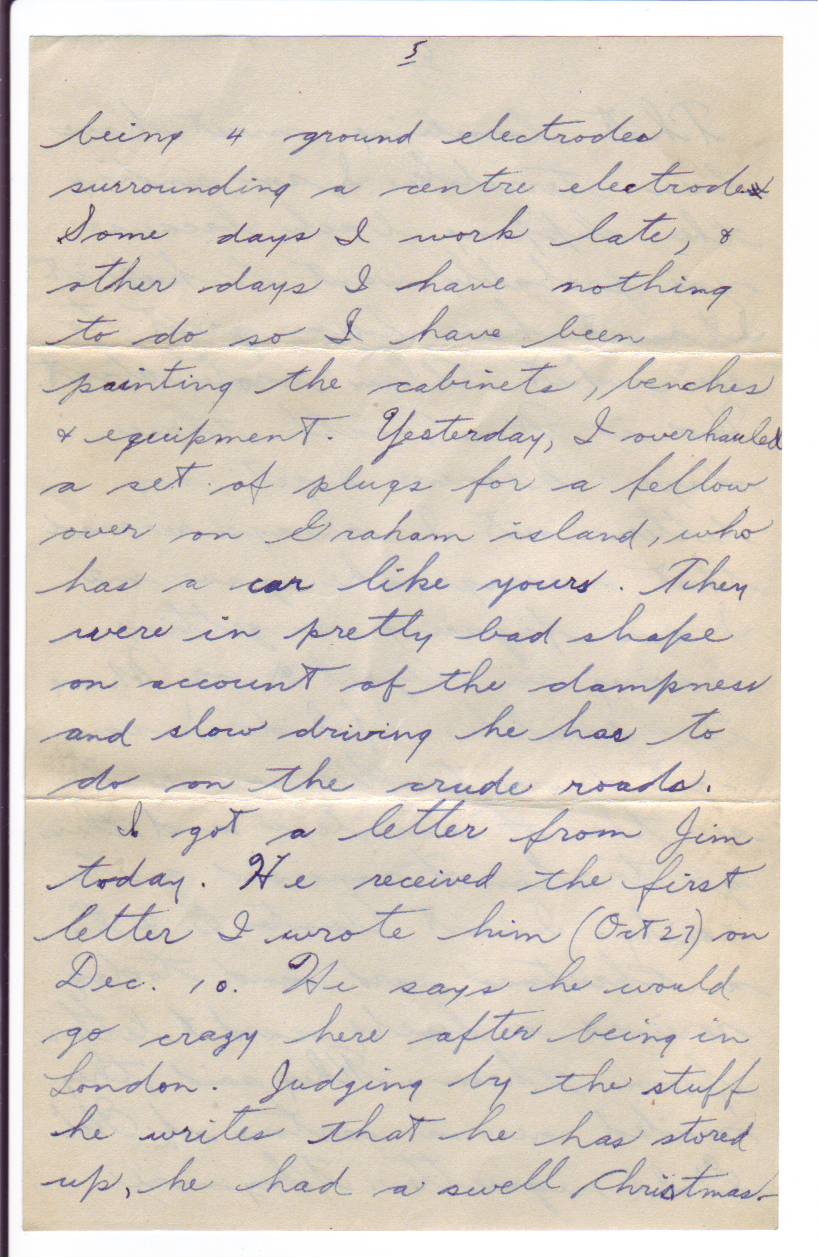 5
being 4 ground electrodes
surrounding a centre electrode
Some days I work late, &
other days I have nothing
to do so I have been
painting the cabinets, benches
& equipment. Yesterday, I overhauled
a set of plugs for a fellow
over on Graham island, who
has a car like yours. They
were in pretty bad shape
on account of the dampness
and slow driving he has to
do on the crude roads.
I got a letter from Jim
today. He received the first
letter I wrote him (Oct 27) on
Dec. 10. He says he would
go crazy here after being in
London. Judging by the stuff
he writes that he has stored
up, he had a swell Christmas.